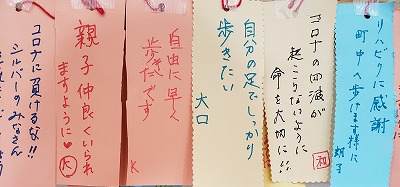 リハビリに感謝
町中へ歩けます様に
コロナの四減が
起こらないように
命を大切に!!
和
自分の足でしっかり
歩きたい
大口
自由に早く
歩きたいです
K
親子仲良くいられ
ますように♥
K
コロナに負けるな!!
シルバーのみなさん